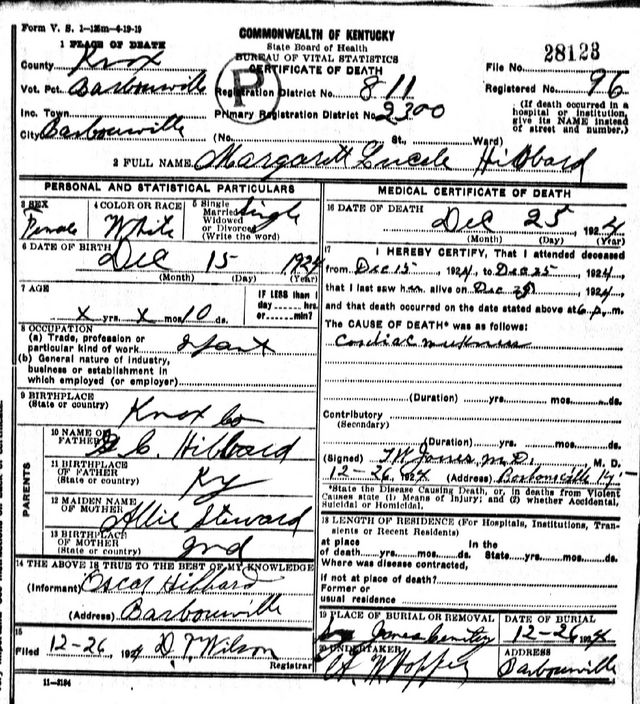 Form V. S. 1-125m-4-19-19
COMMONWEALTH OF KENTUCKY
State Board of Health
BUREAU OF VITAL STATISTICS
CERTIFICATE OF DEATH
1 PLACE OF DEATH
County Knox
Vot. Pct. Barbourville
Inc. Town
City Barbourville
P
Registration District No. 811
Primary Registration District No. 2300
(No. St., Ward)
File No. 28123
Registered No. 96
(If death occurred in a
hospital or institution,
give its NAME instead
of street and number.)
2 FULL NAME Margarett Lucele Hibbard
PERSONAL AND STATISTICAL PARTICULARS
3 SEX
Female
4 COLOR OR RACE
White
5 Single
Married
Widowed
or Divorced
(Write the word)
Single
6 DATE OF BIRTH
Dec 15 1924
(Month) (Day) (Year)
7 AGE
x yrs. x mos. 10 ds.
IF LESS than 1
day hrs.
or min.?
8 OCCUPATION
(a) Trade, profession or
particular kind of work
(b) General nature of industry,
business or establishment in
which employed (or employer)
9 BIRTHPLACE
(State or country)
Knox Co
PARENTS
10 NAME OF
FATHER C. Hibbard
11 BIRTHPLACE
OF FATHER
(State or country)
Ky
12 MAIDEN NAME
OF MOTHER
Allie Steward
13 BIRTHPLACE
OF MOTHER
(State or country)
Ind
14 THE ABOVE IS TRUE TO THE BEST OF MY KNOWLEDGE
(Informant) Oscar Hibbard
(Address) Barbourville
15
Filed 12-26, 1924 D. T. Wilson
Registrar
11-3184
MEDICAL CERTIFICATE OF DEATH
16 DATE OF DEATH
Dec 25, 1924
(Month) (Day) (Year)
17 I HEREBY CERTIFY, That I attended deceased
from Dec 15 1924, to Dec 25, 1924,
that I last saw h alive on Dec 25, 1924,
and that death occurred on the date stated above at 6 p. m.
The CAUSE OF DEATH* was as follows:
Cardiac
(Duration) yrs. mos. ds.
Contributory
(Secondary)
(Duration) yrs. mos. ds.
(Signed) T. W. Jones, M. D. M. D.
12-26, 1924 (Address) Barbourville Ky
*State the Disease Causing Death, or, in deaths from Violent
Causes state (1) Means of Injury; and (2) whether Accidental,
Suicidal or Homicidal.
18 LENGTH OF RESIDENCE (For Hospitals, Institutions, Tran-
sients or Recent Residents)
at place In the
of death yrs. mos. ds. State yrs. mos. ds.
Where was disease contracted,
If not at place of death?
Former or
usual residence
19 PLACE OF BURIAL OR REMOVAL
Jones Cemitery
DATE OF BURIAL
12-26, 1924
20 UNDERTAKER
Hopper
ADDRESS
Barbourville